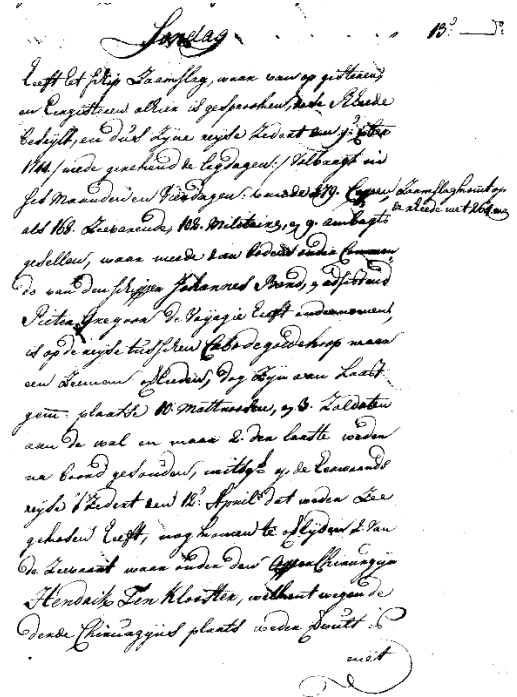 Sondag 13:' _ d:o
Heeft het schip Zaamslag, waar van op gisteren,
en Eergisteren alhier is gesprooken, deese Rheede
beseijlt, en dus zijne reijse zedert den
1744./ mede gerekend de legdagen:/ volbragt in
ses Maanden en Vier dagen: van de 279. Coppen,
Zaamslag komt op
de rheede met 269. man
als 168. Zeevarende, 102. Militaire, en 9. ambagts
gesellen, waar meede dien bodem onder Comman
do van den schipper Johannes Bond, geadsisteerd
Pieter Gregoor de Voijagie heeft ondernoomen,
is op de reijse tusschen Cabo de goede hoop maar
een Zeeman overleeden, dog zijn aan laast
gem: plaatse 10. Mattroosen, en 3. Zoldaten
aan de wal en maar 2. den laatste weder
na boord gesonden, mitsg:s op de herwaards
reijse 't zedert den 12:' April dat weder Zee
gekosen heeft, nog komen te overlijden 2. van
de Zeevaart waar onder den Opper Chirurgijn
Hendrik Ten Klooster, welkent wegen de
derde Chirurgijns plaats weder vervult is
met